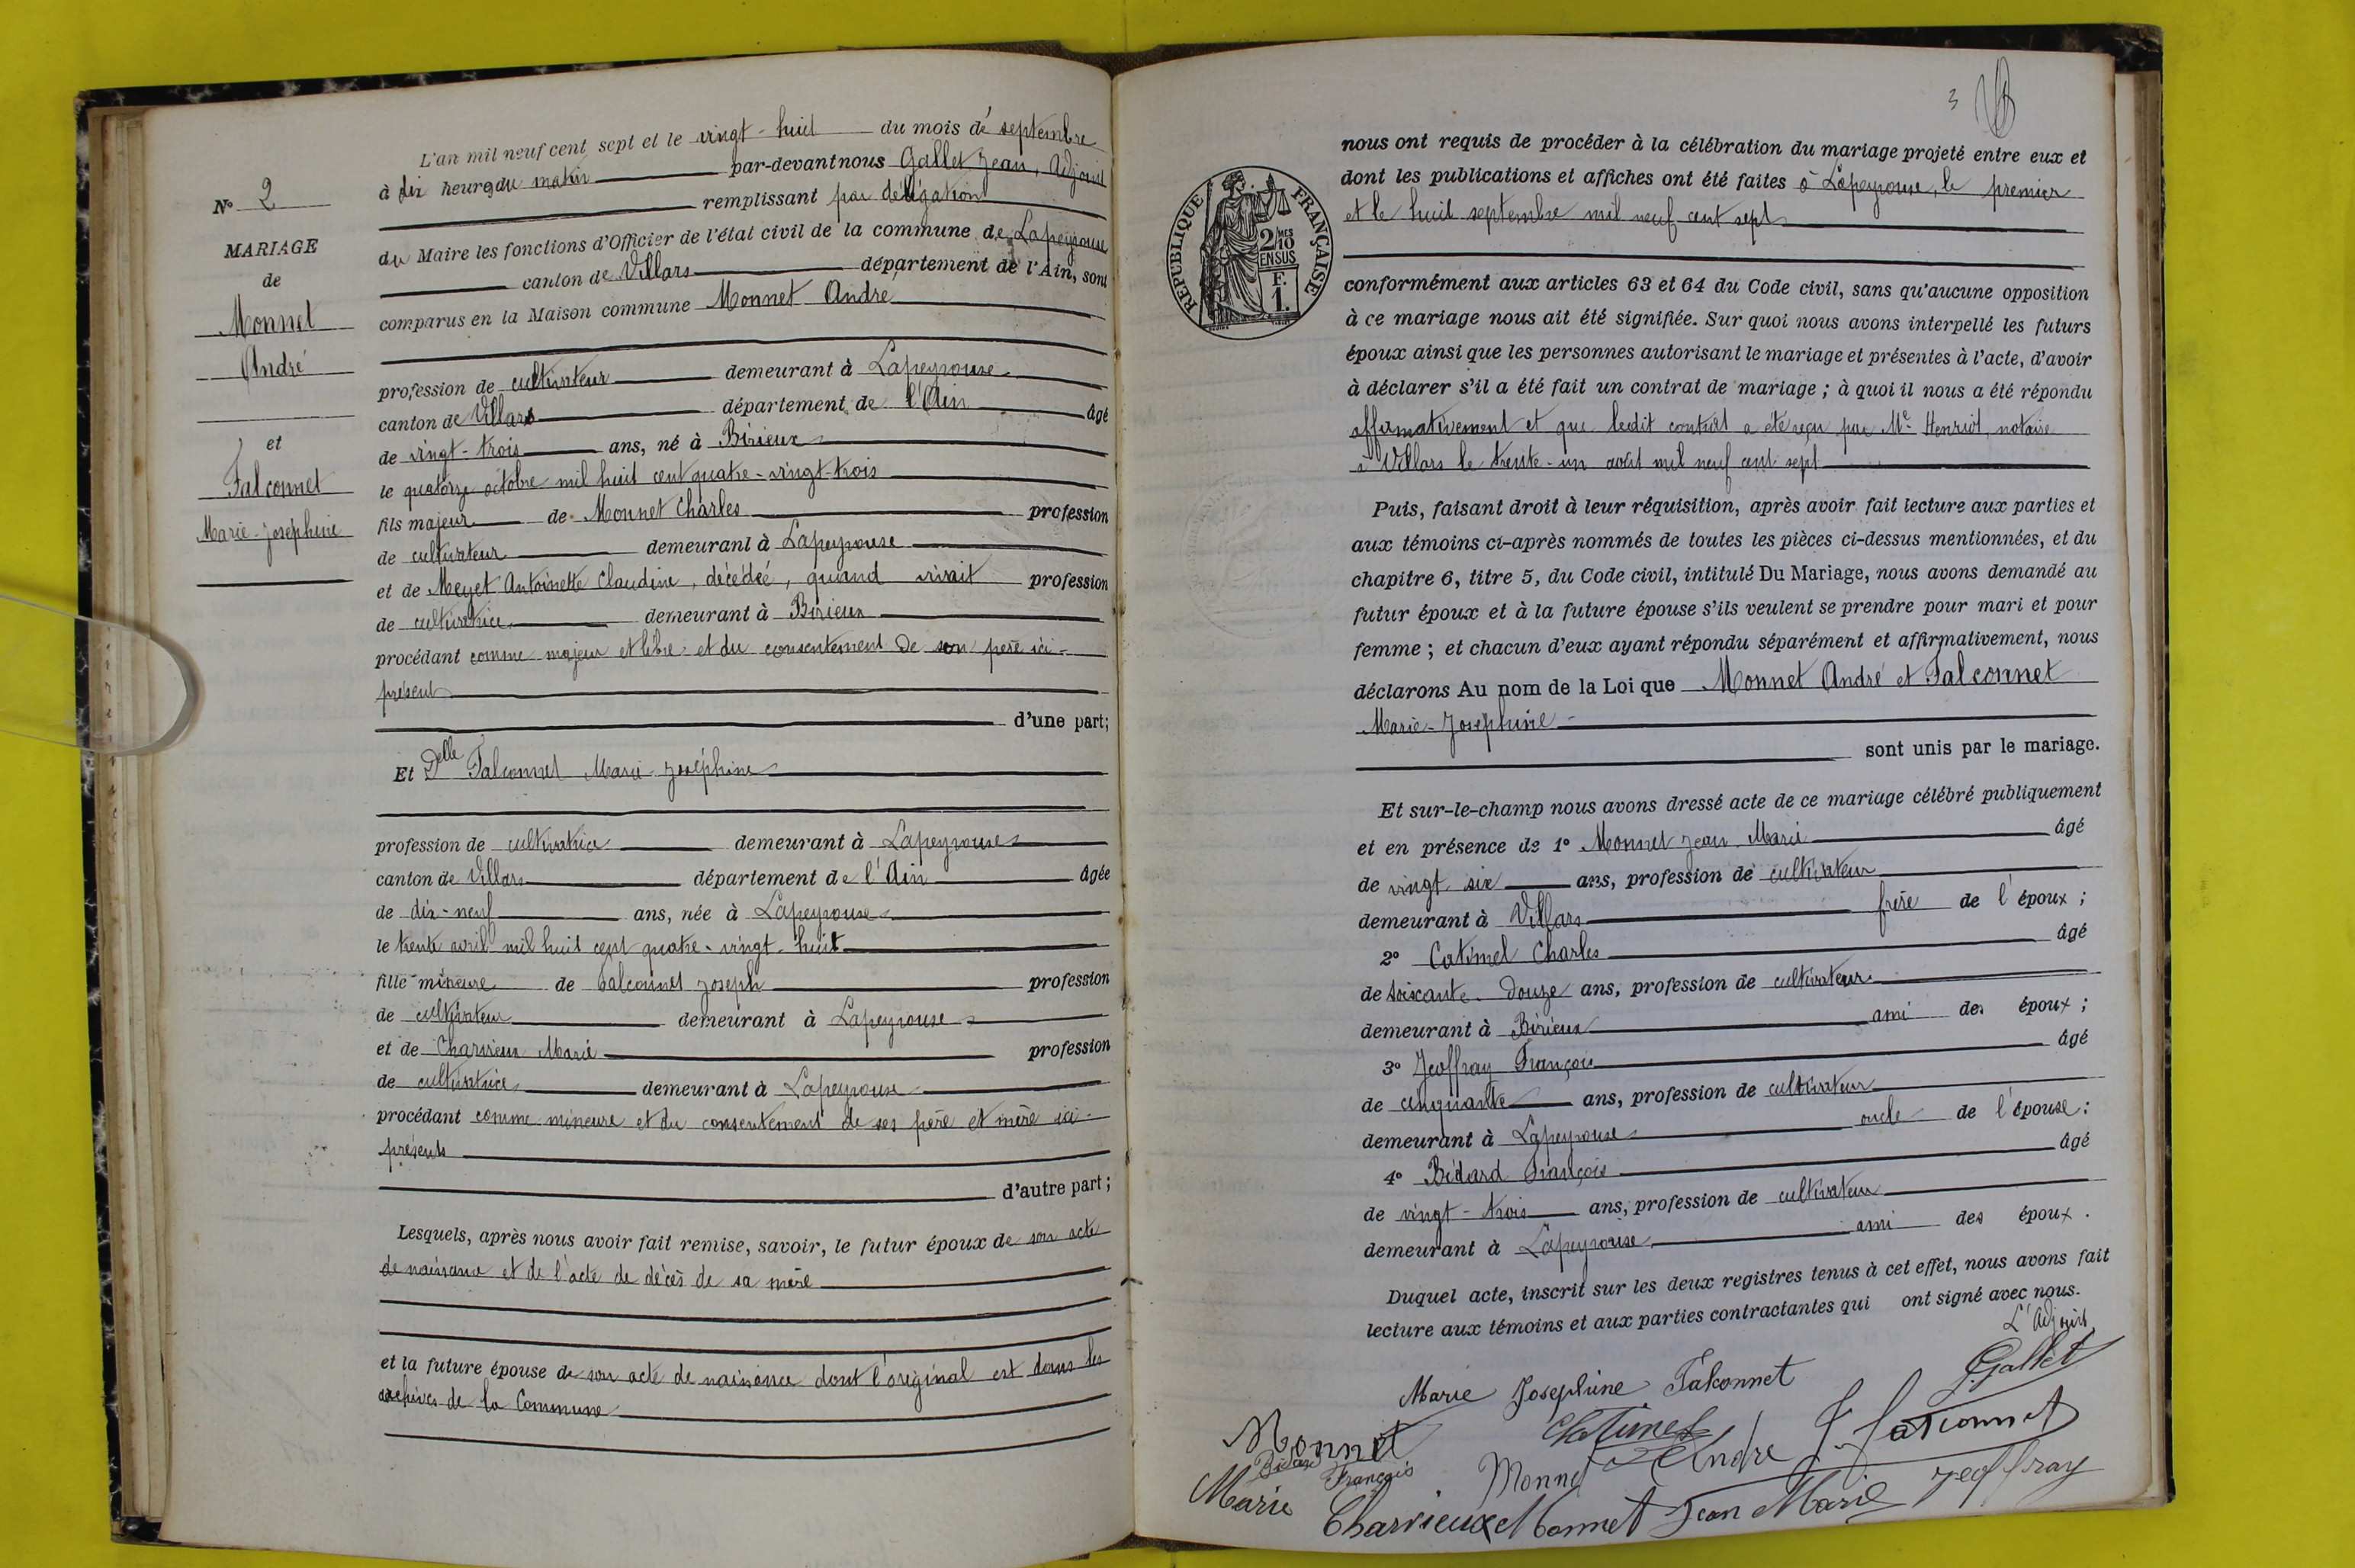 N° 2
MARIAGE
de
Monnet
André
et
Falconnet
Marie-Joséphine
L'an mil neuf cent sept et le vingt-huit du mois de septembre
à dix heures du matin par-devant nous Gallet Jean, Adjoint
remplissant par délégation
du Maire les fonctions d'Officier de l'état civil de la commune de Lapeyrouse
canton de Villars département de l'Ain, sont
comparus en la Maison commune Monnet André
profession de cultivateur demeurant à Lapeyrouse
canton de Villars département de l'Ain âgé
de vingt-trois ans, né à Birieux
le quatorze octobre mil huit cent quatre-vingt-trois
fils majeur de Monnet Charles profession
de cultivateur demeurant à Lapeyrouse
et de Meyet Antoinette Claudine, décédée, quand vivait profession
de cultivatrice demeurant à Birieux
procédant comme majeur et libre et du consentement de son père ici-
présent
d'une part;
Et Delle Falconnet Marie-Joséphine
profession de cultivatrice demeurant à Lapeyrouse
canton de Villars département de l'Ain âgée
de dix-neuf ans, née à Lapeyrouse
le trente avril mil huit cent quatre-vingt-huit
fille mineure de Falconnet Joseph profession
de cultivateur demeurant à Lapeyrouse
et de Charvieux Marie profession
de cultivatrice demeurant à Lapeyrouse
procédant comme mineure et du consentement de ses père et mère ici-
présents
d'autre part;
Lesquels, après nous avoir fait remise, savoir, le futur époux de son acte
de naissance et de l'acte de décès de sa mère
et la future épouse de son acte de naissance dont l'original est dans les
archives de la Commune
3
RÉPUBLIQUE FRANÇAISE
2/10 MES
EN SUS
F.
1.
nous ont requis de procéder à la célébration du mariage projeté entre eux et
dont les publications et affiches ont été faites à Lapeyrouse, le premier
et le huit septembre mil neuf cent sept
conformément aux articles 63 et 64 du Code civil, sans qu'aucune opposition
à ce mariage nous ait été signifiée. Sur quoi nous avons interpellé les futurs
époux ainsi que les personnes autorisant le mariage et présentes à l'acte, d'avoir
à déclarer s'il a été fait un contrat de mariage ; à quoi il nous a été répondu
affirmativement et que ledit contrat a été reçu par Me Henriot, notaire
à Villars le trente-un août mil neuf cent sept
Puis, faisant droit à leur réquisition, après avoir fait lecture aux parties et
aux témoins ci-après nommés de toutes les pièces ci-dessus mentionnées, et du
chapitre 6, titre 5, du Code civil, intitulé Du Mariage, nous avons demandé au
futur époux et à la future épouse s'ils veulent se prendre pour mari et pour
femme ; et chacun d'eux ayant répondu séparément et affirmativement, nous
déclarons Au nom de la Loi que Monnet André et Falconnet
Marie-Joséphine
sont unis par le mariage.
Et sur-le-champ nous avons dressé acte de ce mariage célébré publiquement
et en présence de 1° Monnet Jean Marie âgé
de vingt six ans, profession de cultivateur
demeurant à Villars frère de l'époux ;
2° Catimel Charles âgé
de soixante-douze ans, profession de cultivateur
demeurant à Birieux ami des époux ;
3° Jeoffray François âgé
de cinquante ans, profession de cultivateur
demeurant à Lapeyrouse oncle de l'épouse ;
4° Bidard François âgé
de vingt-trois ans, profession de cultivateur
demeurant à Lapeyrouse ami des époux.
Duquel acte, inscrit sur les deux registres tenus à cet effet, nous avons fait
lecture aux témoins et aux parties contractantes qui ont signé avec nous.
L'Adjoint
Gallet
Marie Josephine Falconnet
Monnet
Catimel
J. falconnet
Bidard François
Monnet André
Marie Charvieux
Monnet Jean Marie
Jeoffray